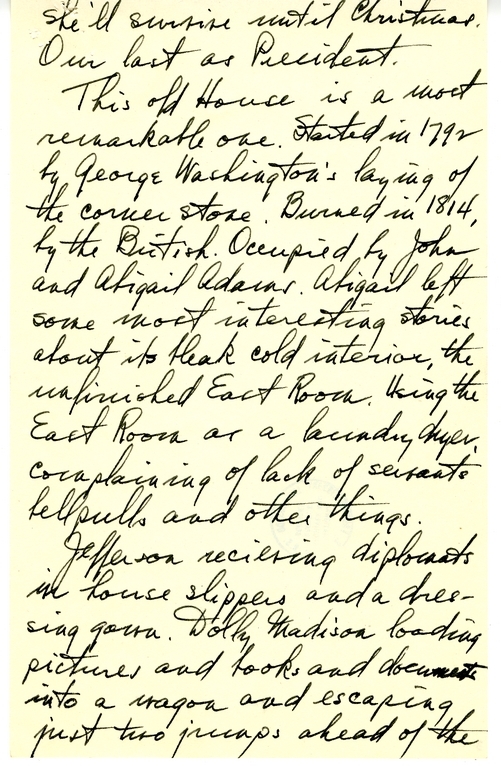 she'll survive until Christmas.
Our last as President.
This old House is a most
remarkable one. Started in 1792
by George Washington's laying of
the corner stone. Burned in 1814,
by the British. Occupied by John
and Abigail Adams. Abigail left
some most interesting stories
about its bleak cold interior, the
unfinished East Room. Using the
East Room as a laundry dryer,
complaining of lack of servants
bellpulls and other things.
Jefferson recieving diplomats
in house slippers and a dres-
sing gown. Dolly Madison loading
pictures and books and documents
into a wagon and escaping
just two jumps ahead of the